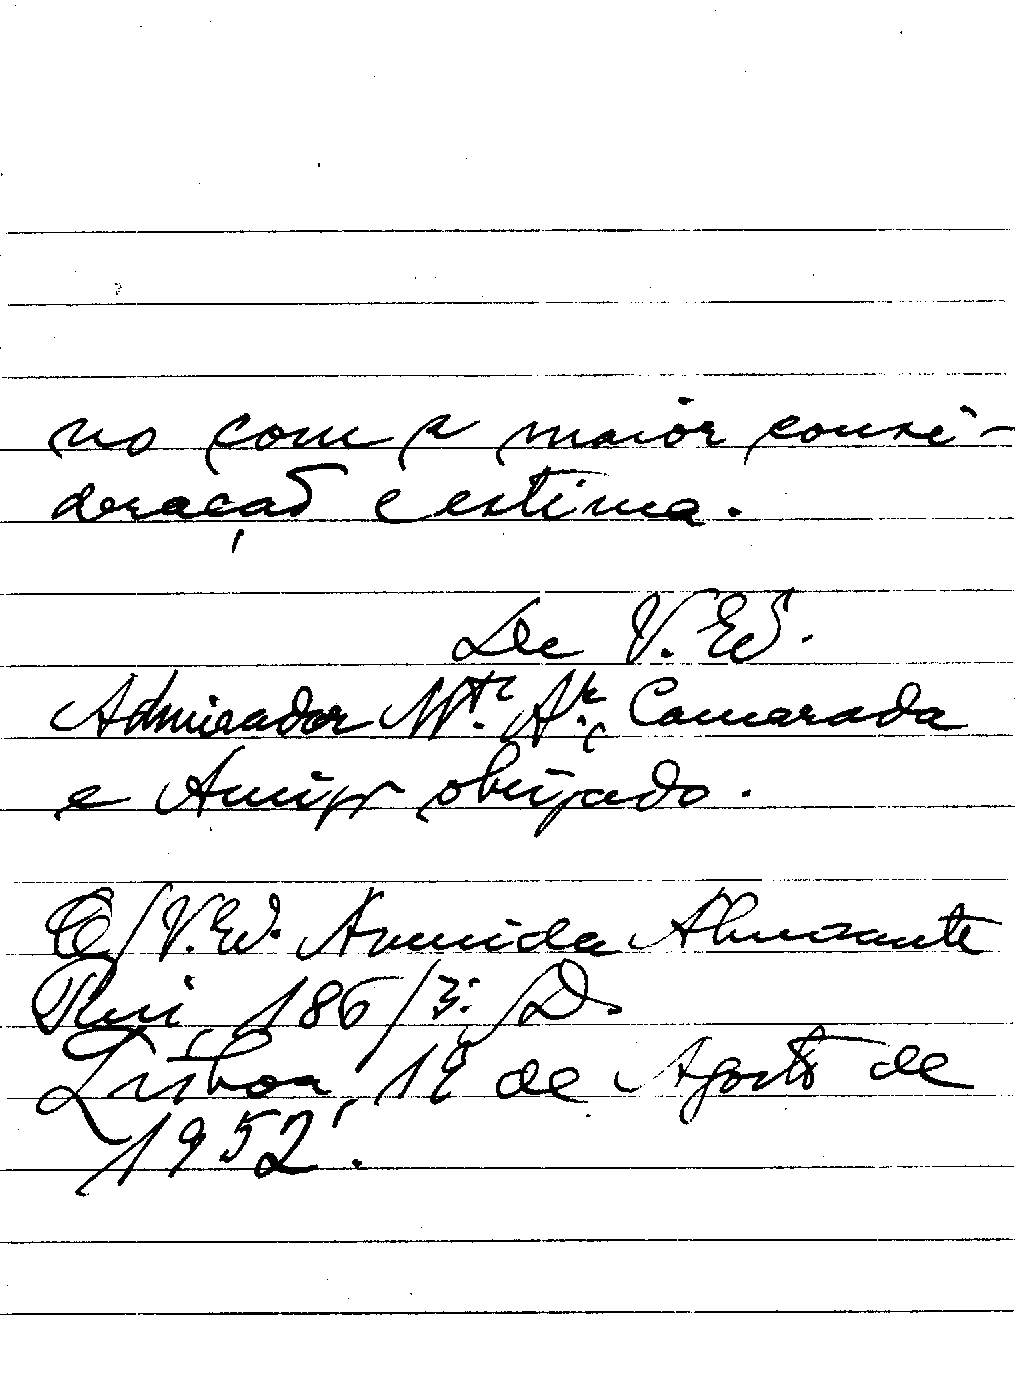 no com a maior consi-
deração e estima.
De V. Ex.
Admirador Mt. Camarada
e Amigo obrigado.
C/ V. Ex. Avenida Almirante
Reis, 186/3. D.
Lisboa, 19 de Agosto de
1952.